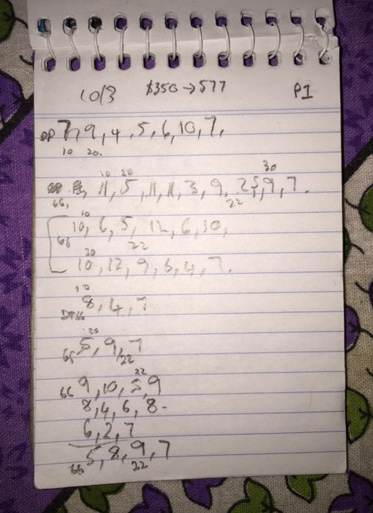 10/3 $350→577 P1
DP 7, 9, 4, 5, 6, 10, 7,
10 20.
10 20 30
66, 11, 5, 11, 11, 3, 9, 2, 5, 9, 7.
22
10
10, 6, 5, 12, 6, 10,
66 22
20
10, 12, 9, 3, 4, 7.
10
8, 4, 7
DP66
20
5, 9, 7
66 22
22
66 9, 10, 5, 9
8, 4, 6, 8-
6, 2, 7
5, 8, 9, 7
66 22